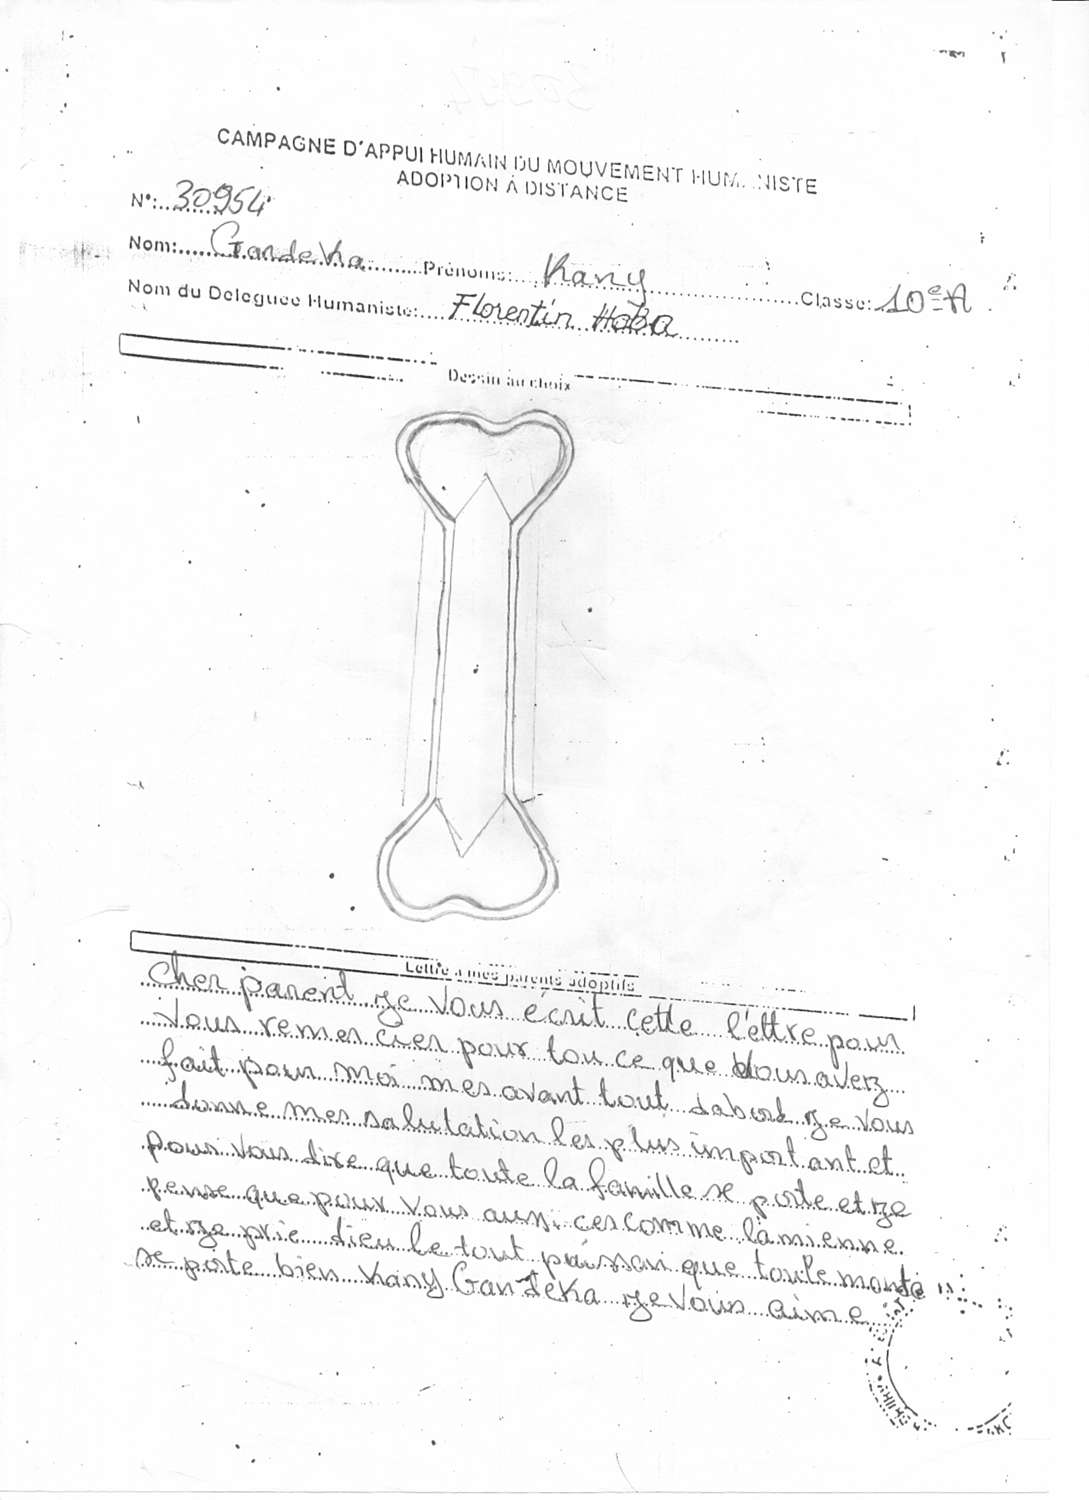 CAMPAGNE D'APPUI HUMAIN DU MOUVEMENT HUMANISTE
ADOPTION À DISTANCE
N°: 30954
Nom: Gandeka Prénoms: Kany Classe: 10e A
Nom du Deleguee Humaniste: Florentin Haba
Dessin au choix
Lettre a mes parents adoptifs
Cher parent je vous écrit cette l'ettre pour
vous remer cier pour tou ce que vous avez
fait pour moi mes avant tout dabord je vous
donne mes salutation les plus important et
pour vous dire que toute la famille se porte et je
pense que pour vous aussi ces comme la mienne.
et je prie dieu le tout puissan que toule monde
se porte bien Kany Gandeka je vous aime